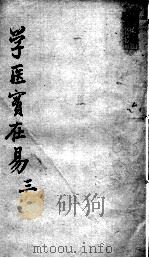 学医寔在易 三
mtoou.info